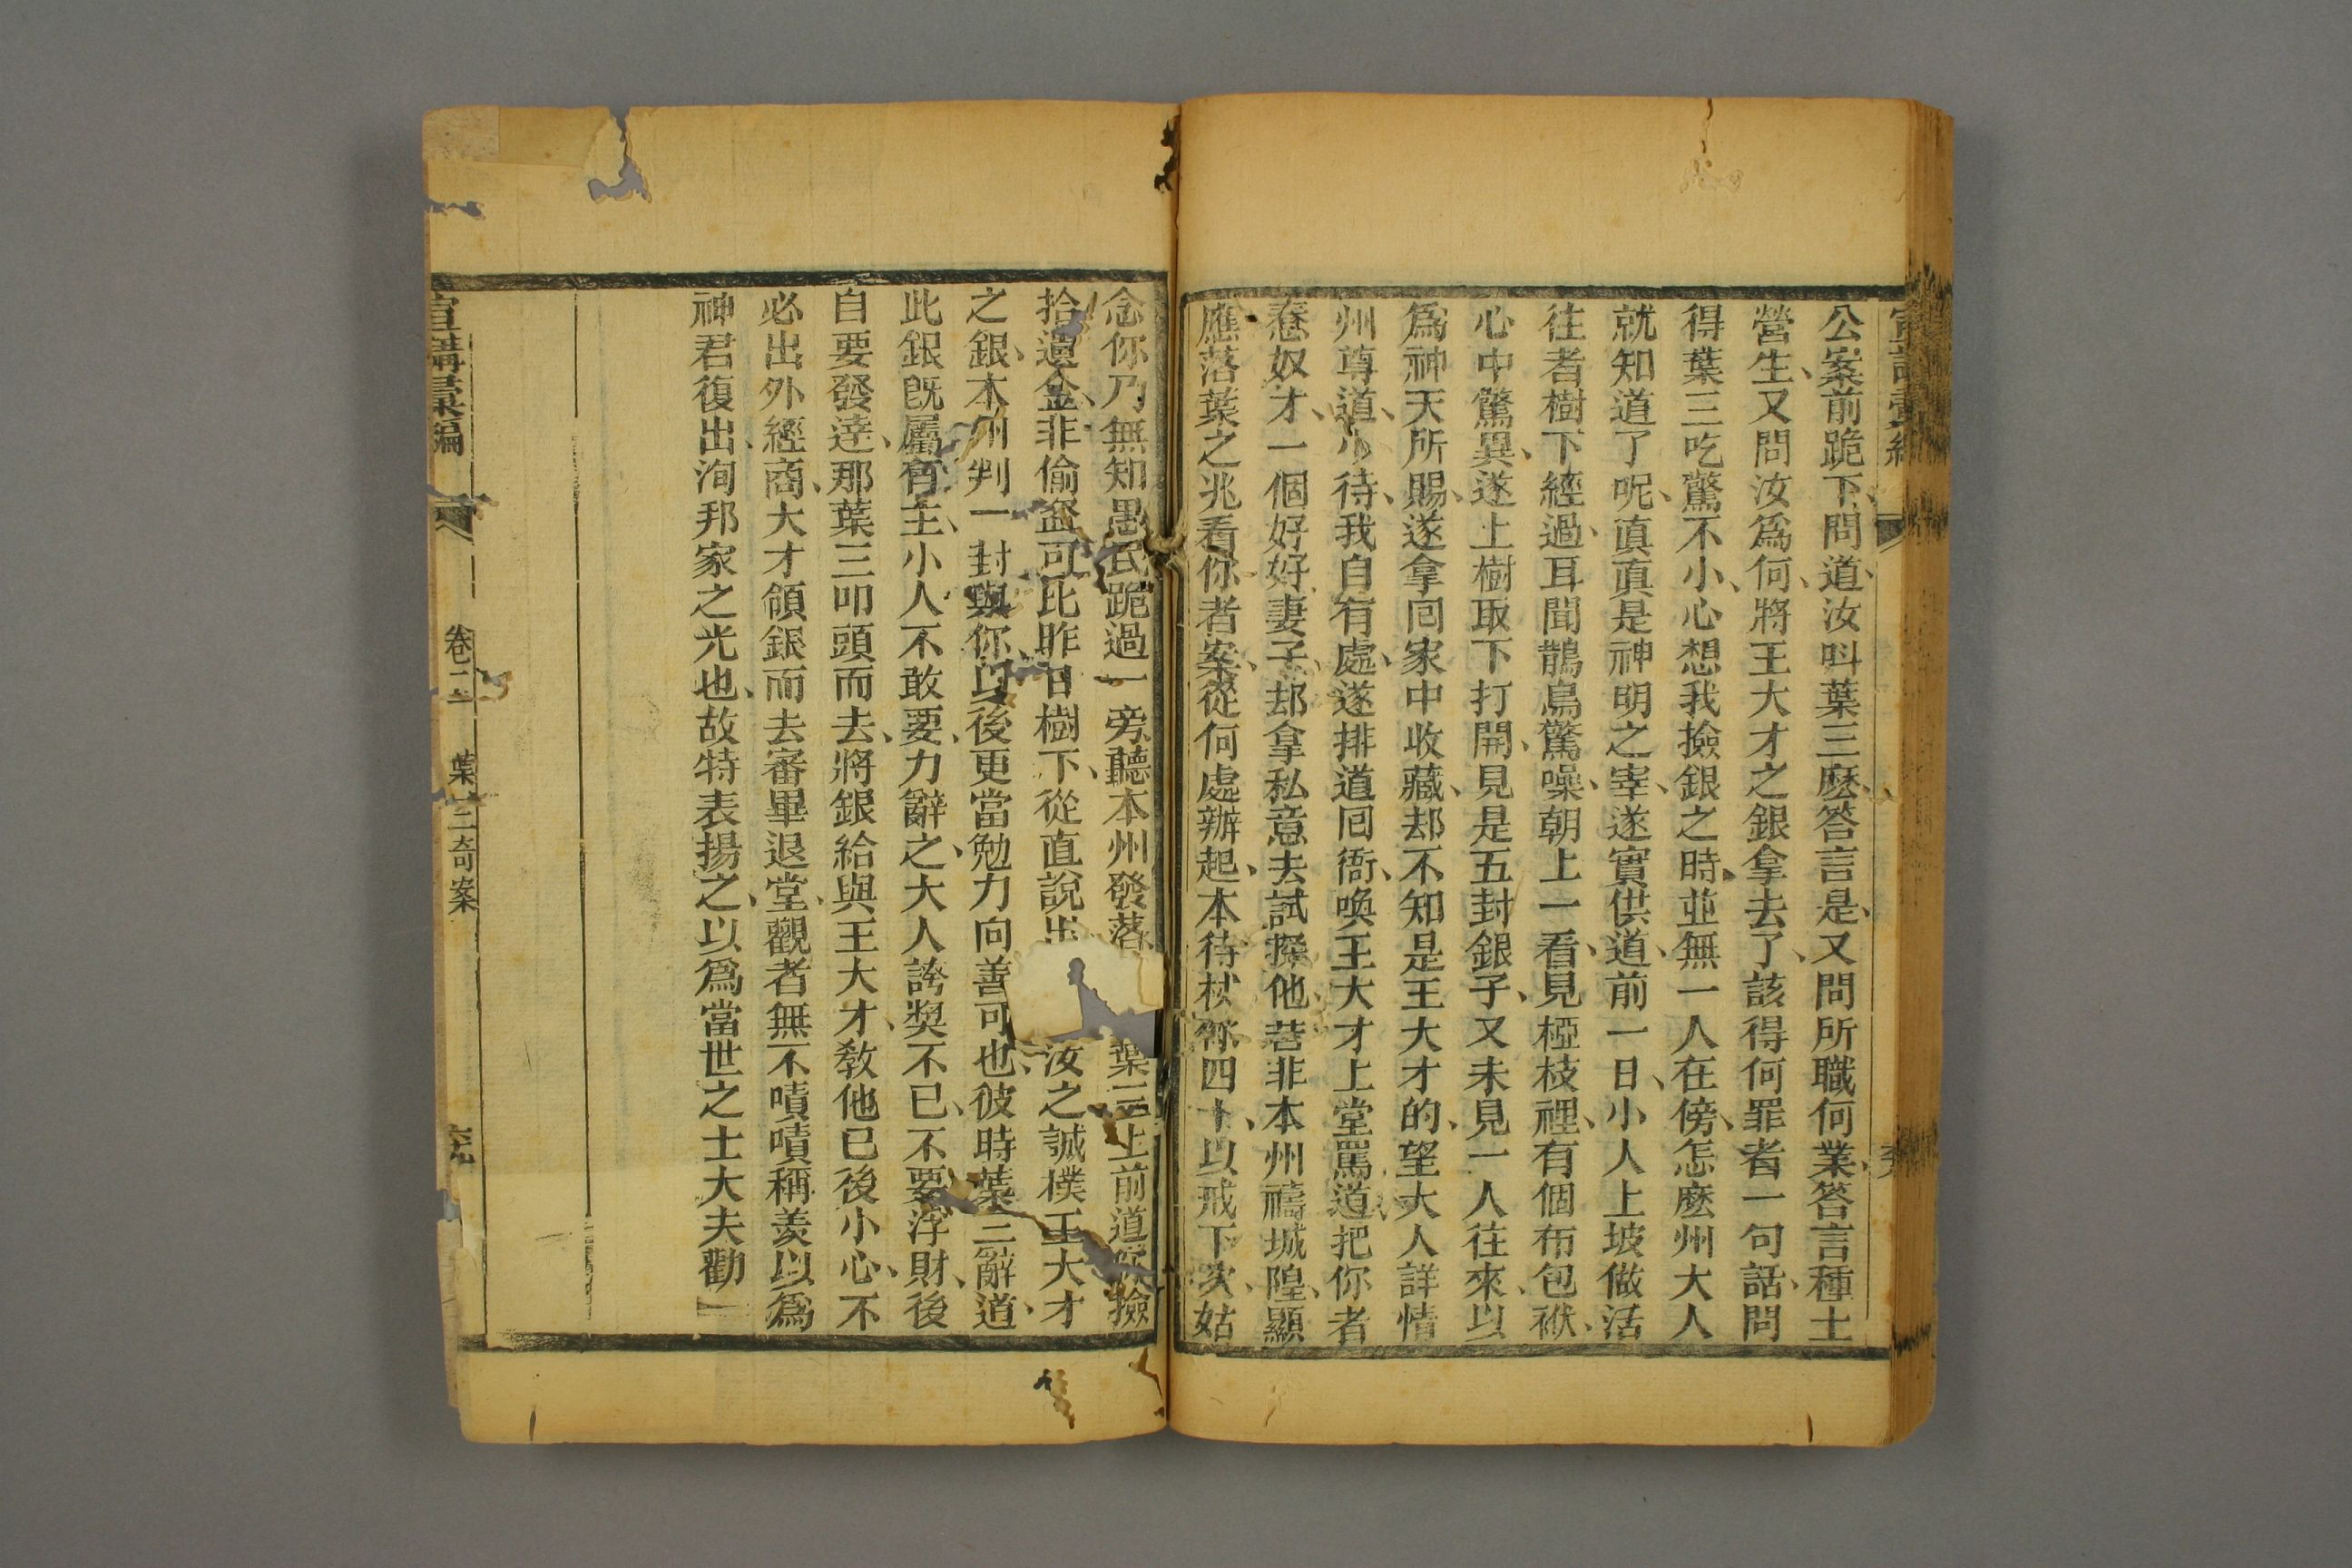 公案前跪下、問道、汝呌葉三麽、答言是、又問所職何業、答言種土
營生、又問汝爲何、將王大才之銀拿去了、該得何罪者一句話、問
得葉三吃驚不小、心想我撿銀之時、並無一人在傍、怎麽州大人
就知道了呢、真真是神明之宰、遂實供道、前一日、小人上坡做活
往者樹下經過、耳聞鵲鳥驚噪、朝上一看、見椏枝裡、有個布包袱、
心中驚異、遂上樹取下打開、見是五封銀子、又未見一人往來、以
爲神天所賜、遂拿囘家中收藏、却不知是王大才的、望大人詳情
州尊道、小待、我自有處、遂排道囘衙、喚王大才上堂罵道、把你者
惷奴才、一個好好妻子、却拿私意去試探他、若非本州禱城隍、顯
應落葉之兆看你者案、從何處辦起、本待杖你四十、以戒下次、姑
念你乃無知愚民、跪過一旁、聽本州發落 葉三上前道、你撿
拾遺金、非偷盜可比、昨日樹下、從直說出 汝之誠樸、王大才
之銀、本州判一封與你、以後更當勉力向善可也、彼時葉三辭道、
此銀旣屬有主、小人不敢要、力辭之、大人誇獎不已、不要浮財、後
自要發達、那葉三叩頭而去、將銀給與王大才、敎他已後小心、不
必出外經商、大才領銀而去、審畢退堂、觀者無不嘖嘖稱羨、以爲
神君復出、洵邦家之光也、故特表揚之、以爲當世之士大夫勸
宣講彙編 卷二 葉三奇案